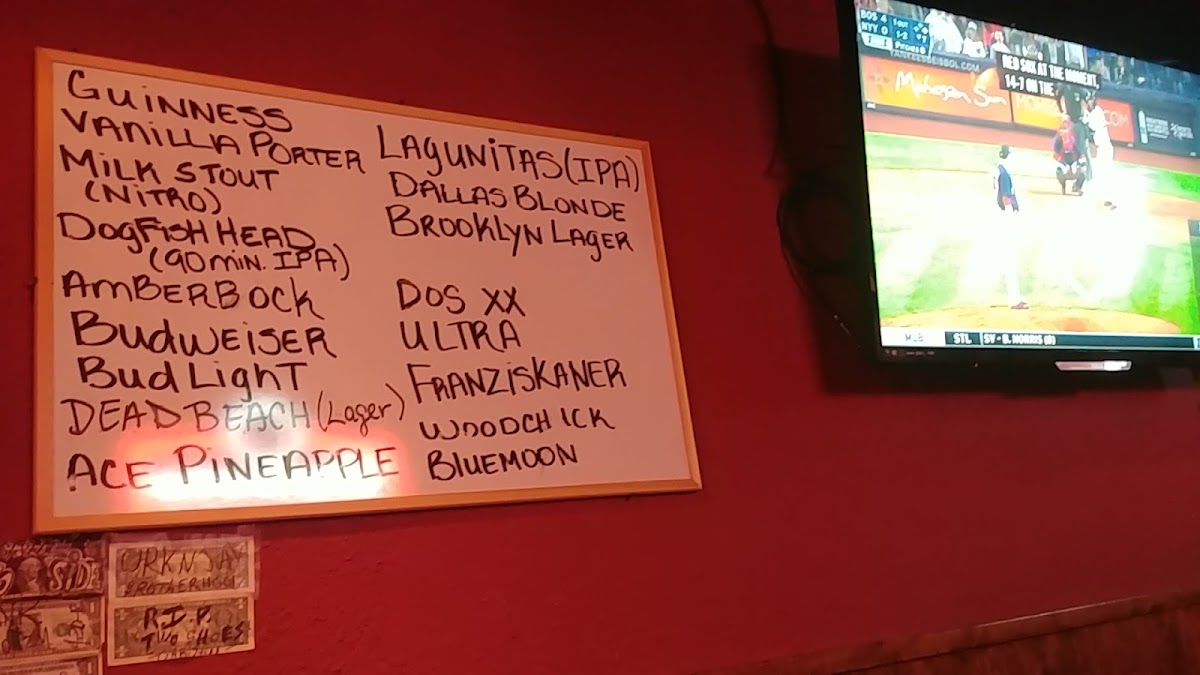 GUINNESS
VANILLA PORTER
MILK STOUT
(NITRO)
DOGFISH HEAD
(90 MIN. IPA)
AMBERBOCK
BUDWEISER
BUD LIGHT
DEAD BEACH (Lager)
ACE PINEAPPLE
LAGUNITAS (IPA)
DALLAS BLONDE
BROOKLYN LAGER
DOS XX
ULTRA
FRANZISKANER
WOODCHICK
BLUEMOON
BOS 4
NYY 0
1 OUT
1-2
RED SOX AT THE MOMENT,
14-7 ON THE
MLB
STL
SIDE
BROTHERHOOD
R.I.P.